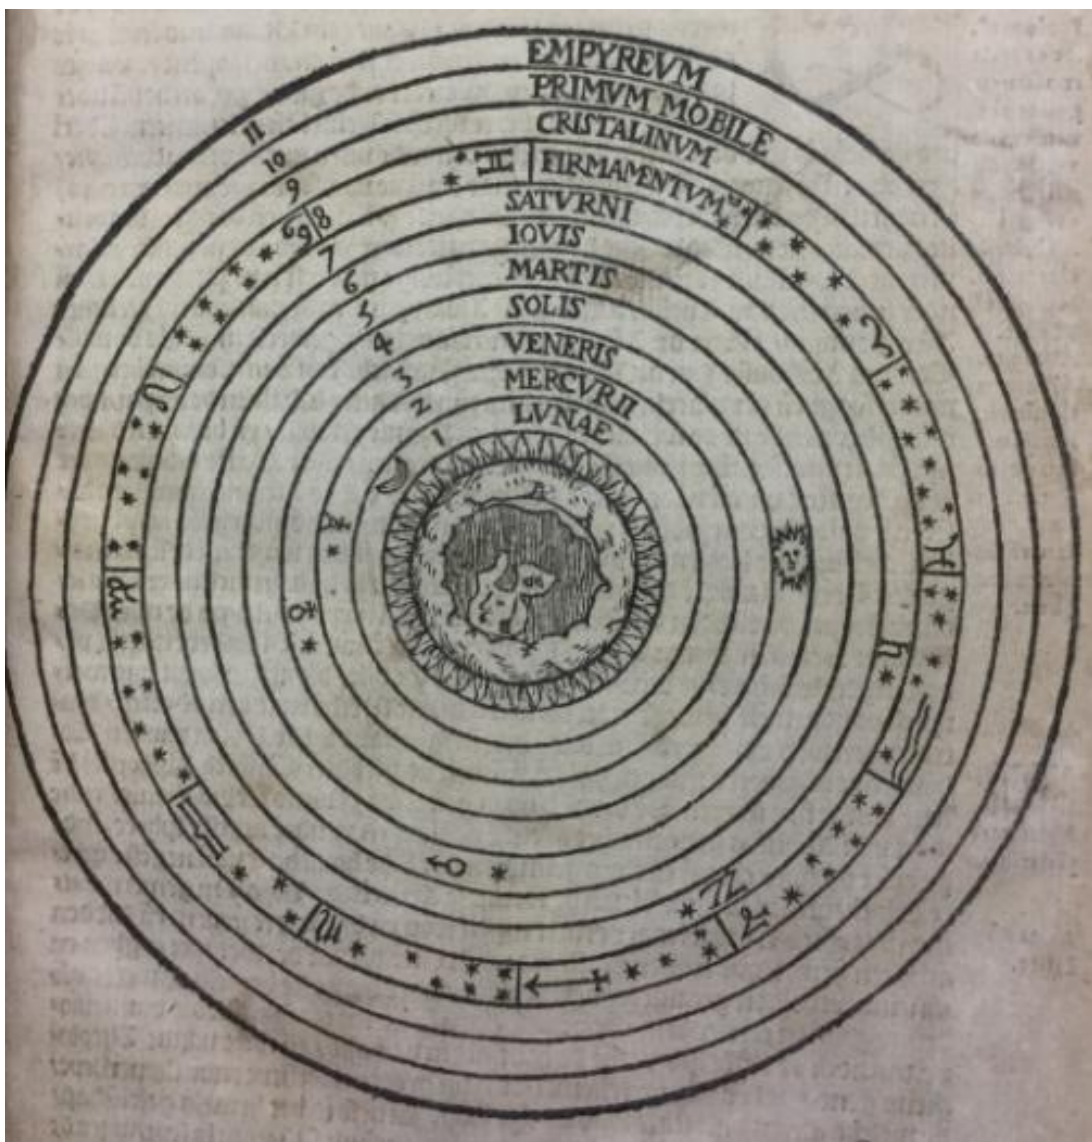 EMPYREVM
PRIMVM MOBILE
CRISTALINVM
FIRMAMENTVM
SATVRNI
IOVIS
MARTIS
SOLIS
VENERIS
MERCVRII
LVNAE
11
10
9
8
7
6
5
4
3
2
1